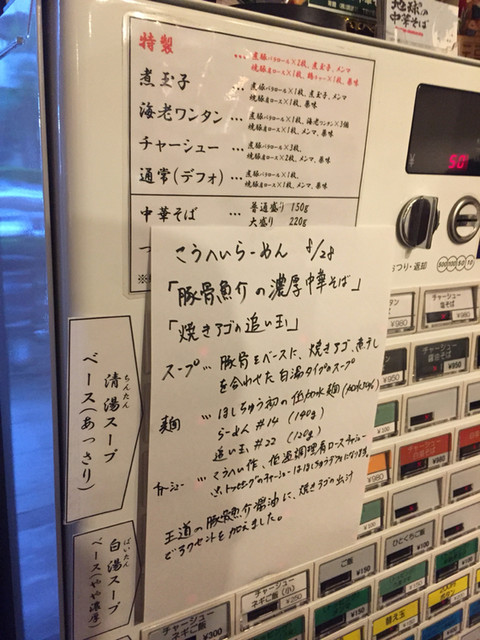 地球の
中華そば
特製 … 煮豚バラロール×2枚、煮玉子、メンマ
焼豚肩ロース×1枚、鶏チャー×1枚、薬味
煮玉子 … 煮豚バラロール×1枚、煮玉子、メンマ
焼豚肩ロース×1枚、薬味
海老ワンタン … 煮豚バラロール×1枚、海老ワンタン×3個
焼豚肩ロース×1枚、メンマ、薬味
チャーシュー … 煮豚バラロール×3枚、
焼豚肩ロース×2枚、メンマ、薬味
通常(デフォ) … 煮豚バラロール×1枚、
焼豚肩ロース×1枚、メンマ、薬味
中華そば … 普通盛り 150g
大盛り 220g
50
つり・返却
500 100 50 10
こうへいらーめん 8/28
「豚骨魚介の濃厚中華そば」
「焼きアゴの追い玉」
スープ… 豚骨をベースに、焼きアゴ、煮干し
を合わせた白湯タイプのスープ
麺 … ほしちゅう初の低加水麺
らーめん #14 (140g)
追い玉 #22 (120g)
チャーシュー … こうへい作、低温調理肩ロースチャーシュー
※トッピングのチャーシューはほしちゅうデフォになります。
王道の豚骨魚介醤油に、焼きアゴの出汁
でアクセントを加えました。
ちんたん
清湯スープ
ベース(あっさり)
ぱいたん
白湯スープ
ベース(やや濃厚)
チャーシュー
塩そば
¥980
¥950
ひとくちご飯
¥100
ご飯
¥150
チャーシュー
ネギご飯(小)
¥250
チャーシュー
ネギご飯
¥300
替え玉